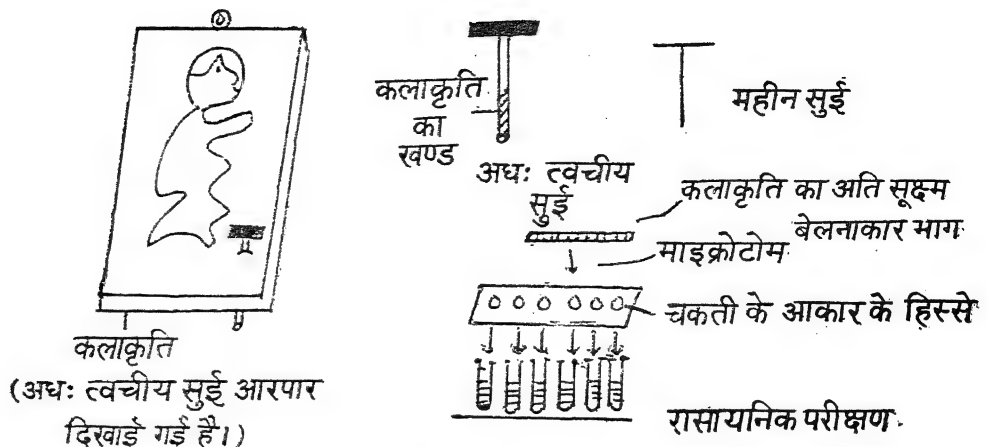 कलाकृति
का
खण्ड
महीन सुई
अधः त्वचीय
सुई
कलाकृति का अति सूक्ष्म
बेलनाकार भाग
माइक्रोटोम
चकती के आकार के हिस्से
रासायनिक परीक्षण
कलाकृति
(अधः त्वचीय सुई आरपार
दिखाई गई है।)